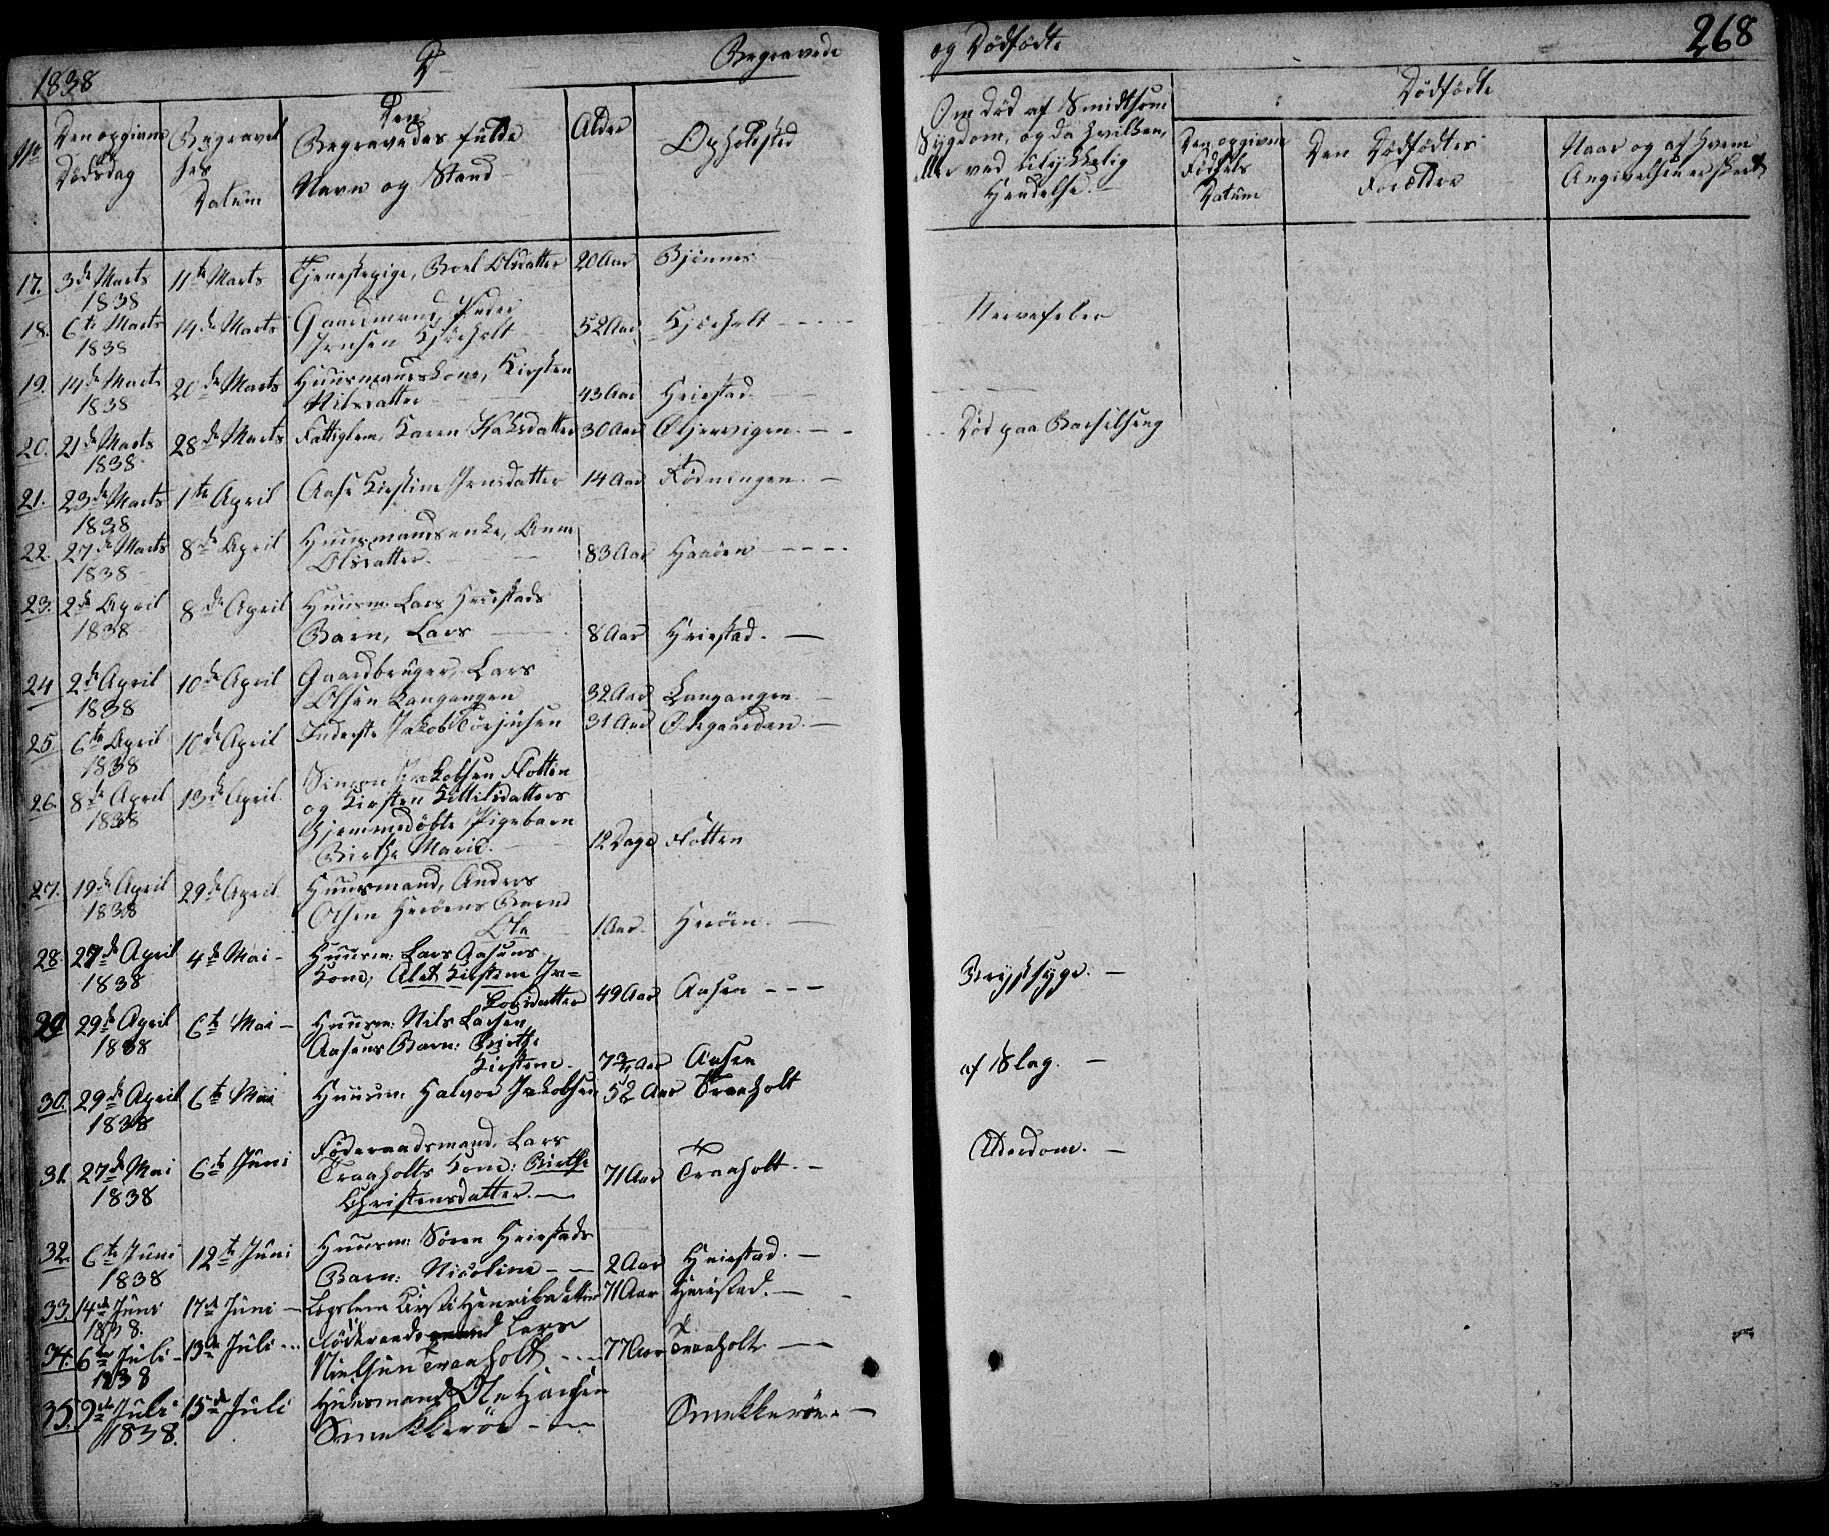 1838
D
Begravede
og Dødfødte
268
No
Den opgivne Dødsdag
Begravelses Datum
Den Begravedes fulde Navn og Stand
Alder
Opholdsted
Om død af Smidtsom Sygdom, og da hvilken, eller ved Ulykkelig Hendelse.
Dødfødte
Den opgivne Fødsels Datum
Den Dødfødtes Forældre
Naar og af Hvem Angivelsen er skeet
17. 3de Marts 1838 11te Marts Tjenestepige, Boel Olsdatter 20 Aar Bjønnes
18. 6te Marts 1838 14de Marts Gaardmand, Peder Jensen Kjøeholt 52 Aar Kjøeholt - - - - Nervefeber
19. 14de Marts 1838 20de Marts Huusmandskone, Kirsten Nilsdatter 43 Aar Heiestad.
20. 21de Marts 1838 28de Marts Fattiglem, Karen Isaksdatter 30 Aar Øljervigen - - Død paa Barselseng
21. 23de Marts 1838 1te April Aase Kirstine Jensdatter 14 Aar Rødningen
22. 27de Marts 1838 8de April Huusmandsenke, Anne Olsdatter. 83 Aar Haaøen - - - -
23. 2de April 1838 8de April Huusm: Lars Heiestads Barn, Lars 8 Aar Heiestad.
24 2de April 1838 10de April Gaardbruger, Lars Olsen Langangen 32 Aar Langangen
25 6te April 1838 10de April Inderste Jakob Torjusen 31 Aar Ødegaarden
26. 8de April 1838 13de April Simon Jakobsen Flotten og Kirsten Kittilsdatters Hjemmedøbte Pigebarn Birthe Marie. 12 Dage Flotten
27. 19de April 1838 29de April Huusmand, Anders Olsen Herøens Barn Ole 1 Aar Herøen.
28. 27de April 1838 4de Mai - Huusm: Lars Aasens Kone, Alet Kirstine Jakobsdatter 49 Aar Aasen - - - Brystsyge.
29 29de April 1838 6te Mai - Huusm: Nils Larsen Aasens Barn: Birthe Kirstine. 7 3/4 Aar Aasen af Slag.
30. 29de April 1838 6te Mai Huusm: Halvor Jakobsen 52 Aar Traaholt
31. 27de Mai 1838 6te Juni Føderaadsmand, Lars Traaholts Kone: Birthe Christensdatter. 71 Aar Traaholt. Alderdom.
32. 6te Juni 1838 12te Juni Huusm: Søren Heiestads Barn: Nicoline 2 Aar Heiestad.
33. 14de Juni 1838. 17de Juni - Lægslem Kirsti Henriksdatter 71 Aar Heiestad.
34. 6te Juli 1838 13de Juli - - Føderaadsmand Lars Nielsen Traaholt 77 Aar Traaholt
35. 9de Juli 1838. 15de Juli Huusmand Ole Hansen Smekkerøe - - Smekkerøe.